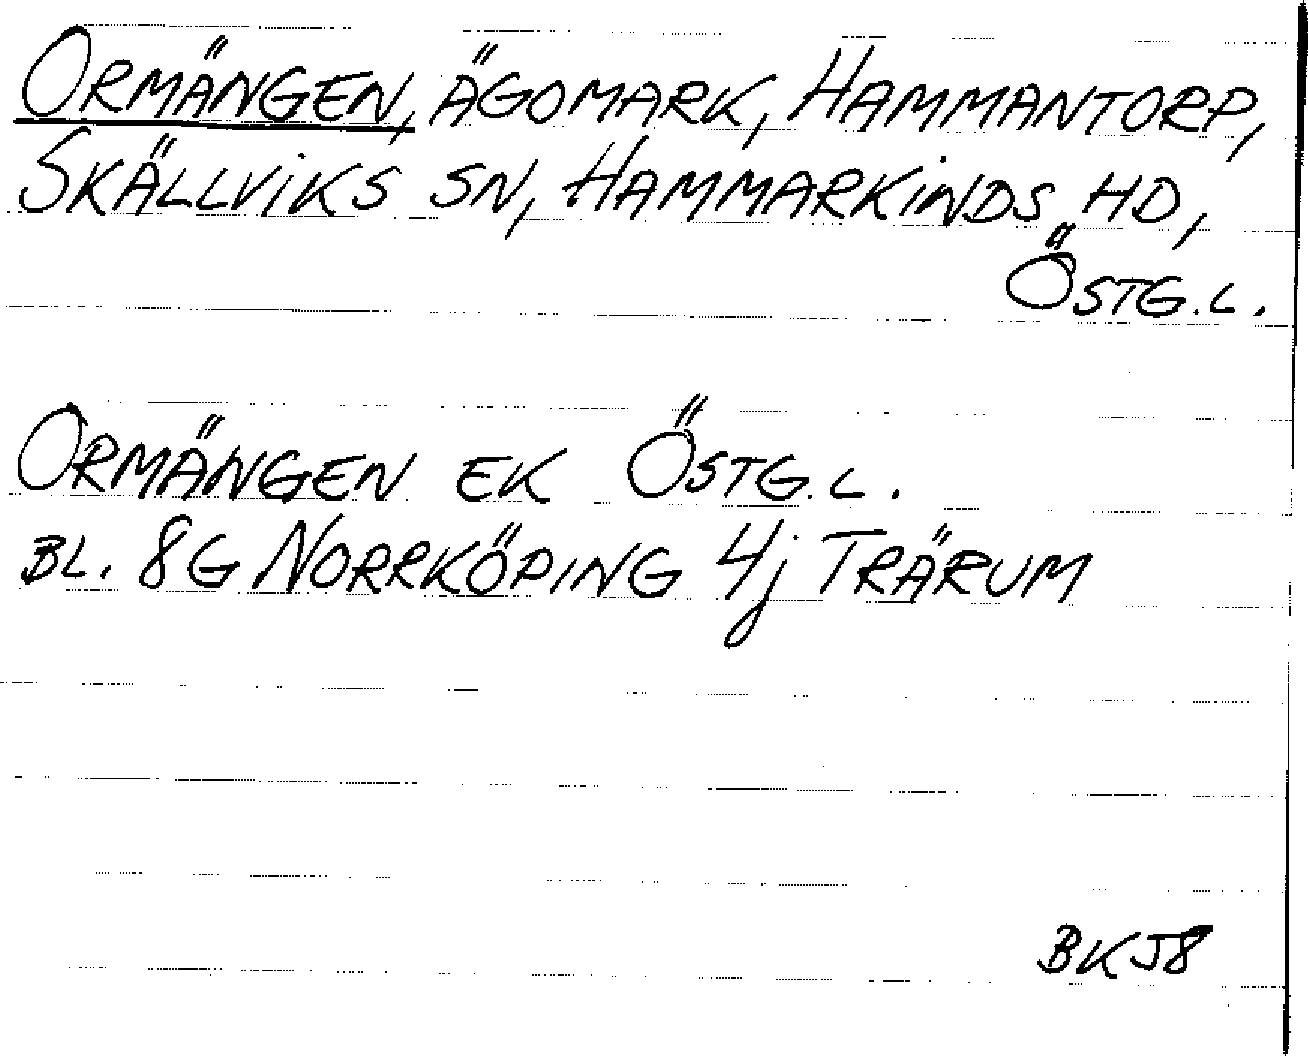 ORMÄNGEN, ÄGOMARK, HAMMANTORP,
SKÄLLVIKS SN, HAMMARKINDS HD,
ÖSTG.L.
ORMÄNGEN EK ÖSTG.L.
BL. 8G NORRKÖPING 4j TRÄRUM
BKJ8